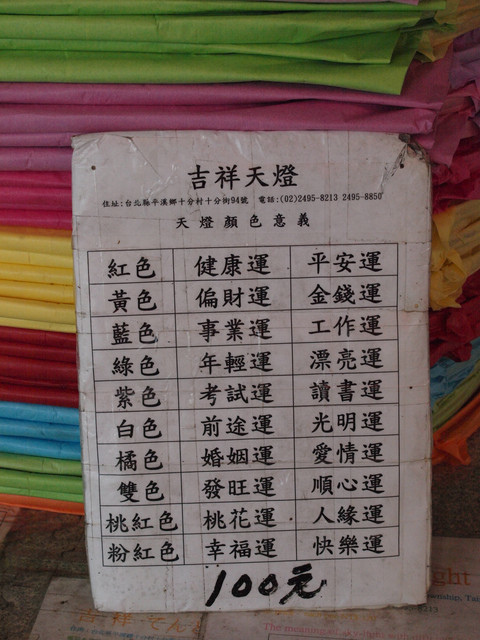 吉祥天燈
住址:台北縣平溪鄉十分村十分街94號 電話:(02)2495-8213 2495-8850
天燈顏色意義
紅色 健康運 平安運
黃色 偏財運 金錢運
藍色 事業運 工作運
綠色 年輕運 漂亮運
紫色 考試運 讀書運
白色 前途運 光明運
橘色 婚姻運 愛情運
雙色 發旺運 順心運
桃紅色 桃花運 人緣運
粉紅色 幸福運 快樂運
100元
ght
ownship, Tai
吉祥てん
The meaning